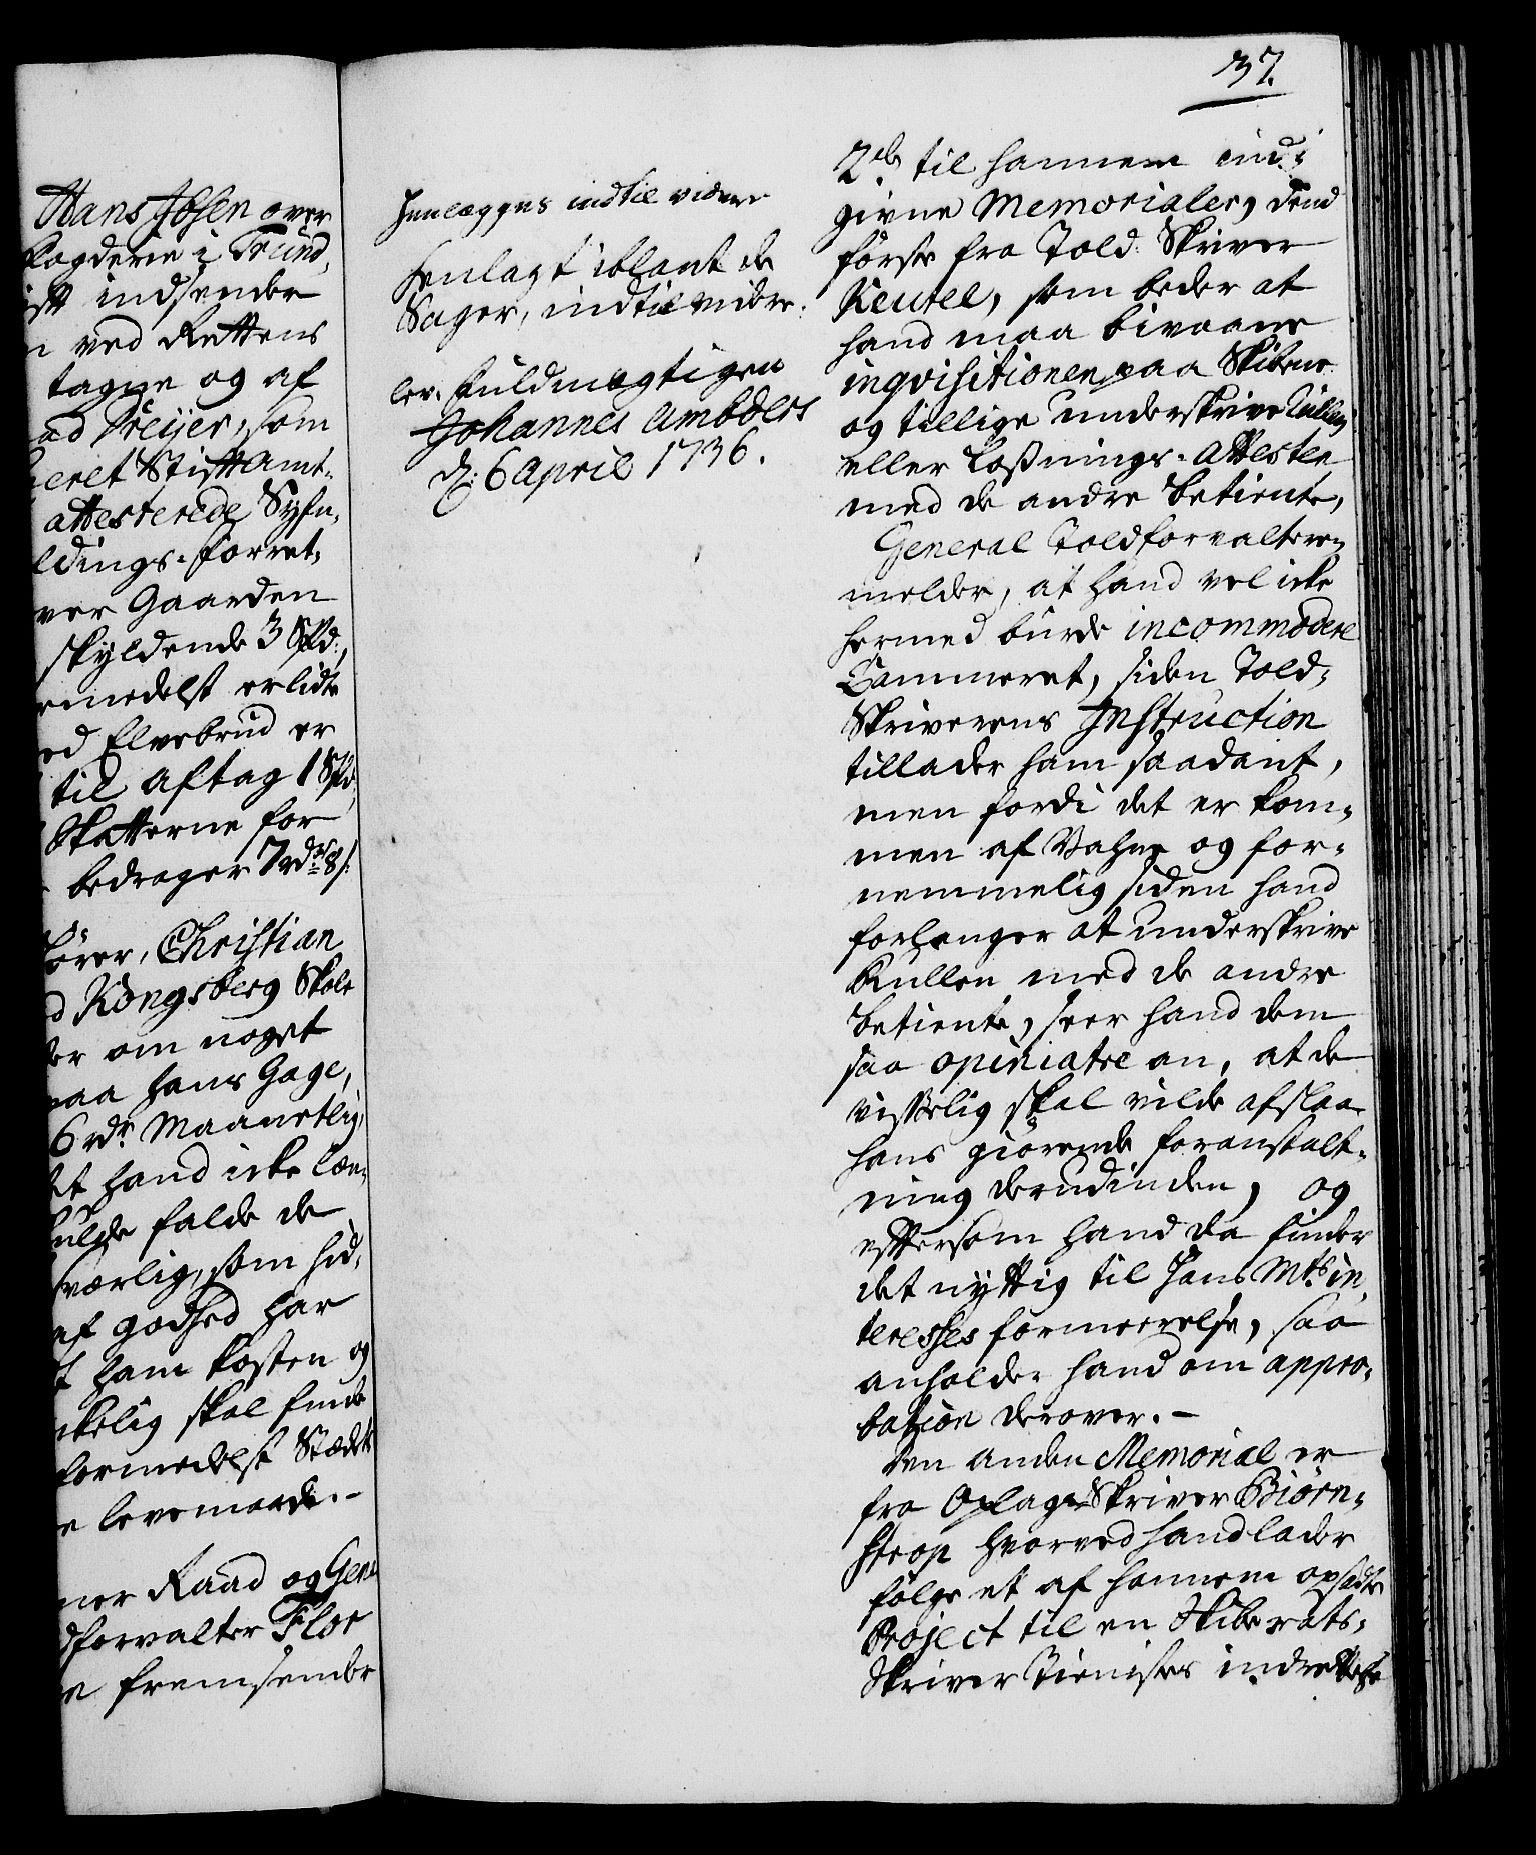 37.
Hans Ibsen over
Fogderie i Trund,
indsender
ved Rettens
tagne og af
Dreyer, som
Stift Amt-
attesterede Syfn,
ldings-forret,
ver Gaarden
skyldende 3 Spd:,
medelst erlidte
Elvebrud er
til aftag 1 Spd,
Skatterne for
bedrager 7 rdr 8 s:
hörer, Christian
Kongsberg Skole
om noget
paa hans Gage,
6 rdr Maanetlig,
at hand icke læn,
falde de
sværlig, som hid,
af godhed har
ham kosten og
skal finde
formedelst Stædets
levemaade. -
Raad og Gene
forvalter Flor
fremsender
Henlægges indtil videre
Henlagt iblant de
Sager, indtil videre.
lev. fuldmegtigen
Johannes Umbders
d: 6 April 1736.
2de til hannem ind-
givne Memorialer, dend
förste fra Told Skriver
Keutel, som beder at
hand maa bivaane
inqvisitionen paa Skibene
og tillige underskrive Rullen
eller Losnings-Attesten
med de andre betiente,
General Toldforvalteren
melder, at hand vel icke
hermed burde incommodere
Cammeret, siden Told-
Skriverens Instruction
tillader ham saadant,
men fordi det er kom-
men af Vahne og for-
nemmelig siden hand
forlanger at underskrive
Rullen med de andre
betiente, seer hand dem
saa opiniatre an, at de
visselig skal vilde afslaa
hans giörende foranstalt-
ning derudinden, og
eftersom hand da finder
det nyttig til Hans Mts in,
teresses formeerelse, saa
anholder hand om appro-
bation derover. -
Den anden Memorial er
fra Oplags Skriver Biörn-
strop hvorved hand lader
følge et af hannem opsadte
Project til en Skibsrats-
Skriver Tienistes indrettelse